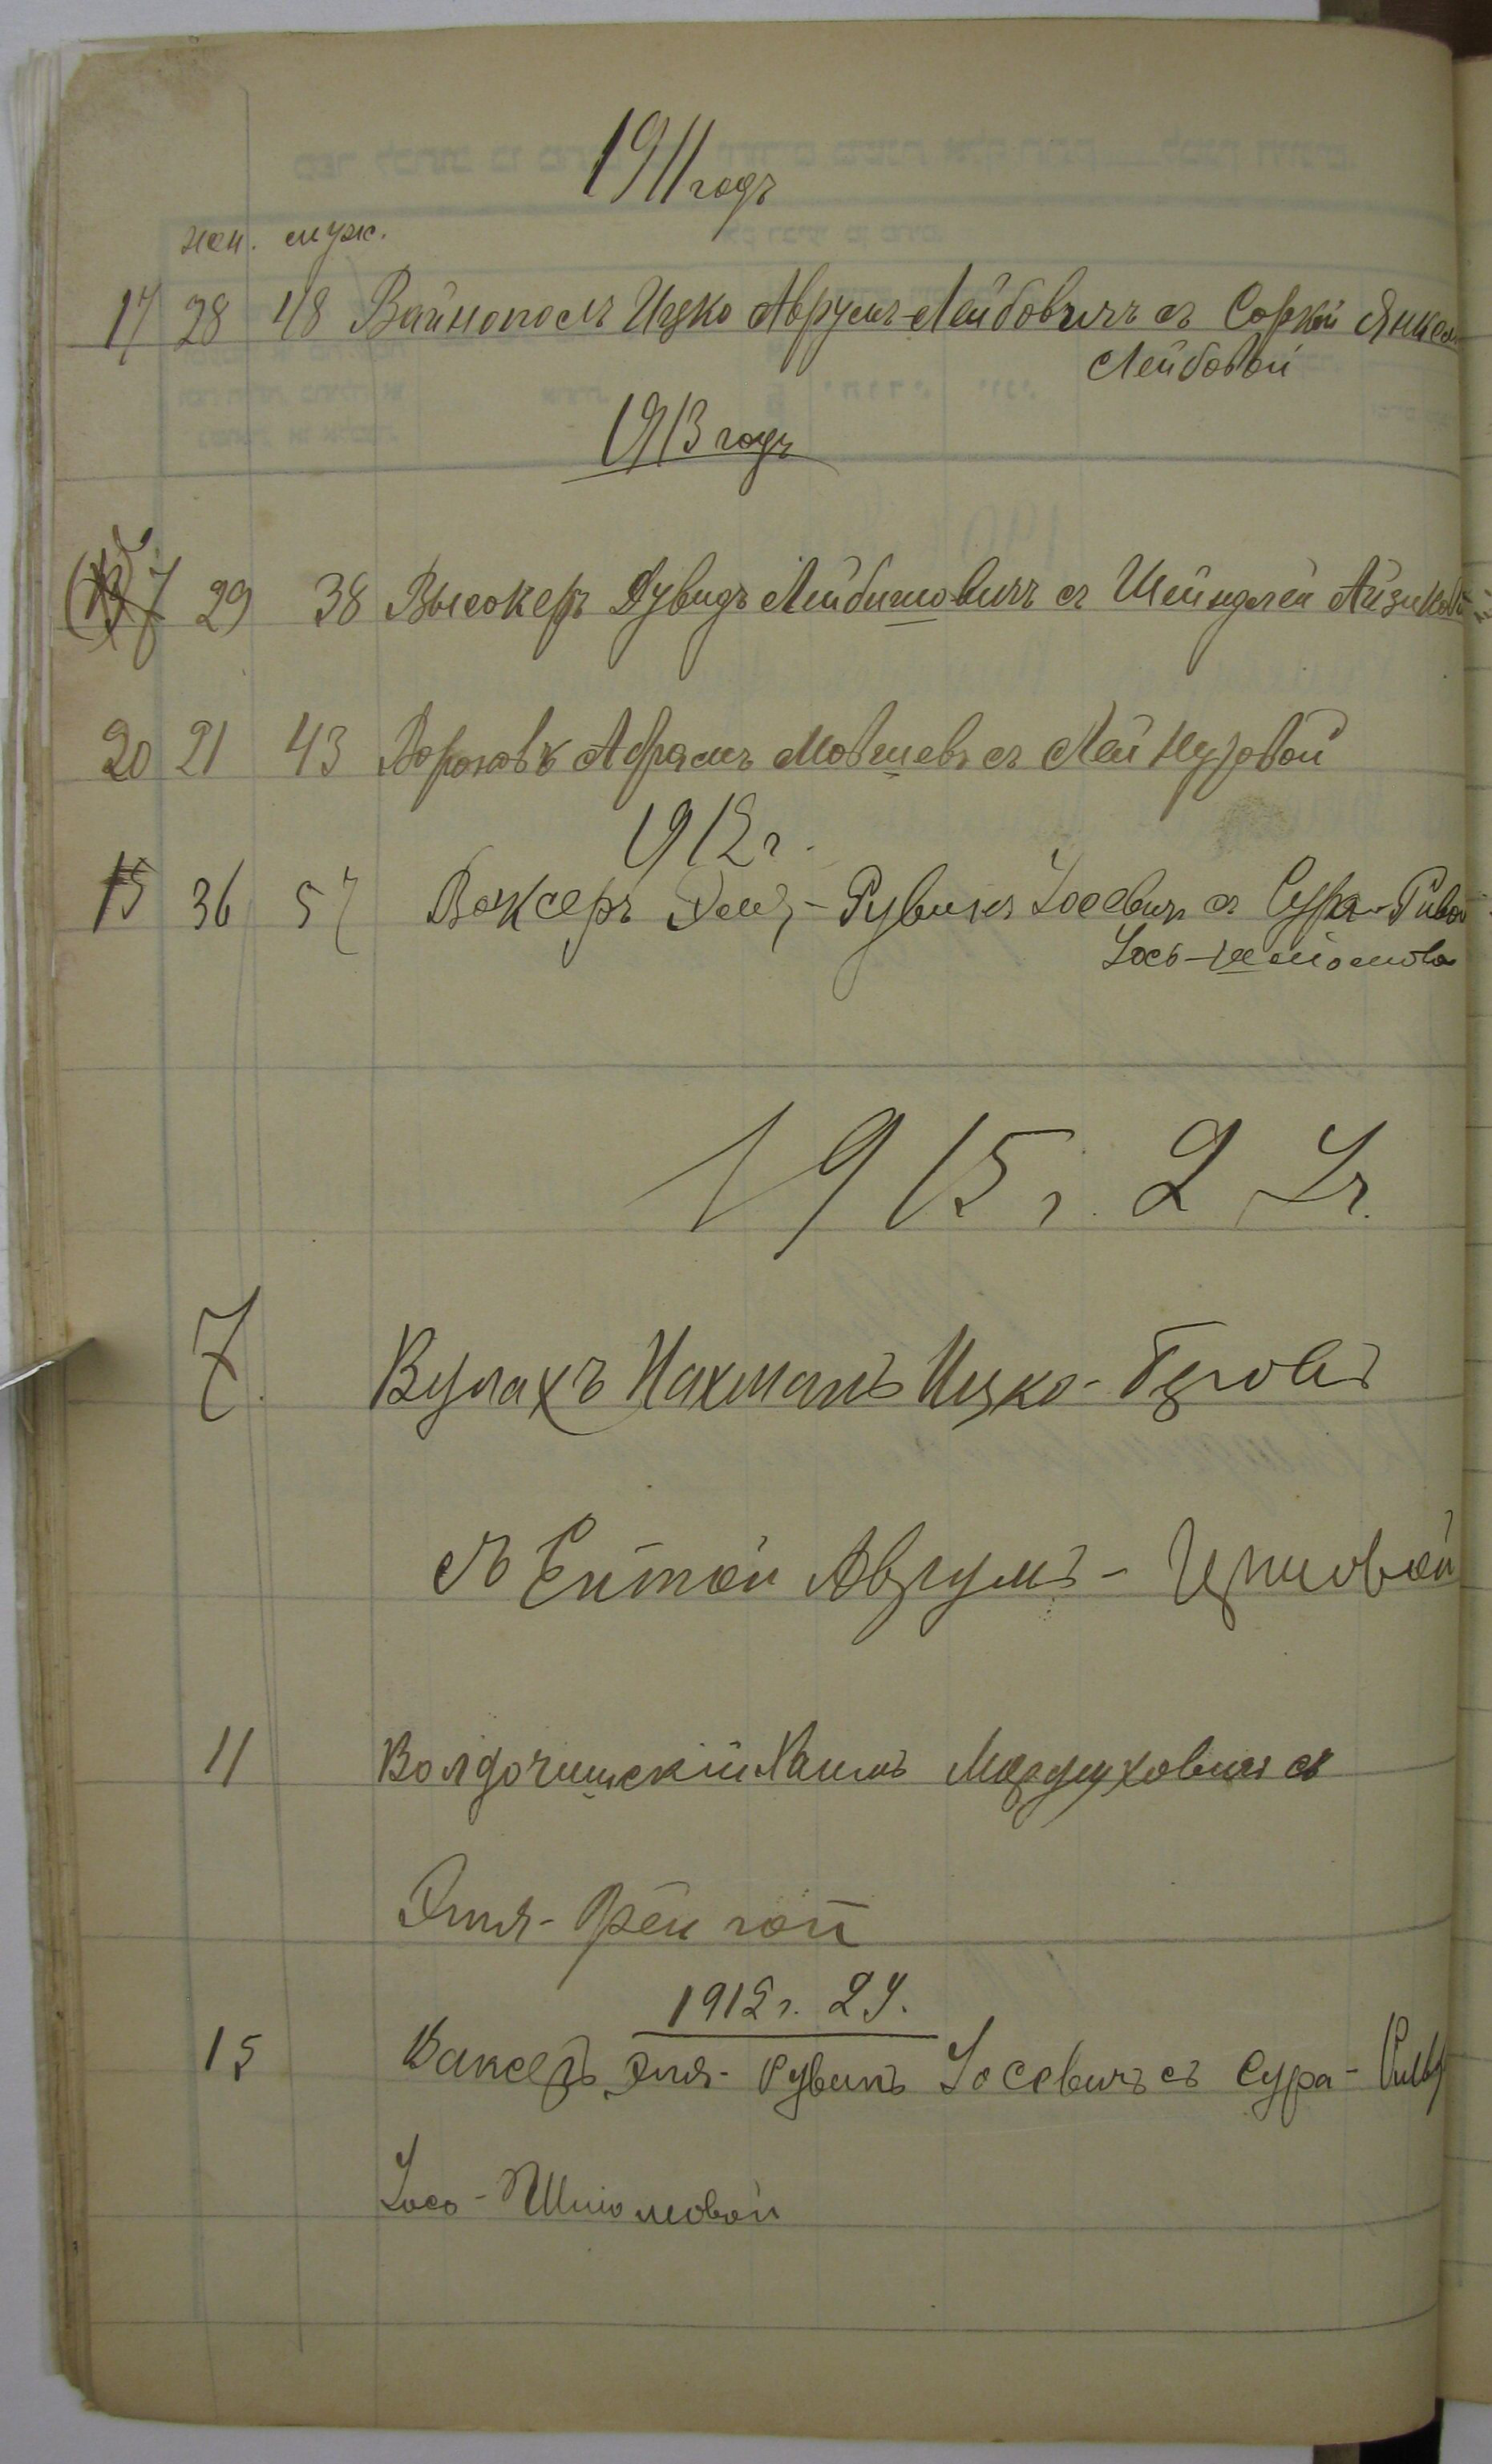 1911 годъ
жен. муж.
17 28 48 Вайнополъ Ицко Аврумъ-Лейбовичъ съ Соркой Янкель
Лейбовой
1913 годъ
7 29 38 Высокеръ Дувидъ Лейбишовичъ съ Шейндлей Айзиковой
20 21 43 Абрамъ Мовшевъ съ Леей
1912 г.
15 36 57 Ваксеръ Рувинъ Іосевичъ съ Сура-Ривой
Іось-
1915 г. 2 Ч.
7. Вулахъ Нахманъ Ицко-Беровъ
съ Ентой Аврумъ-
11 Волдочишскій Хаимъ Мордуховичъ съ
Этля-Фейгой
1912 г. 2 Ч.
15 Ваксеръ Эля-Рувинъ Іосевичъ съ Сура-Ривой
Іось-Шліомовой